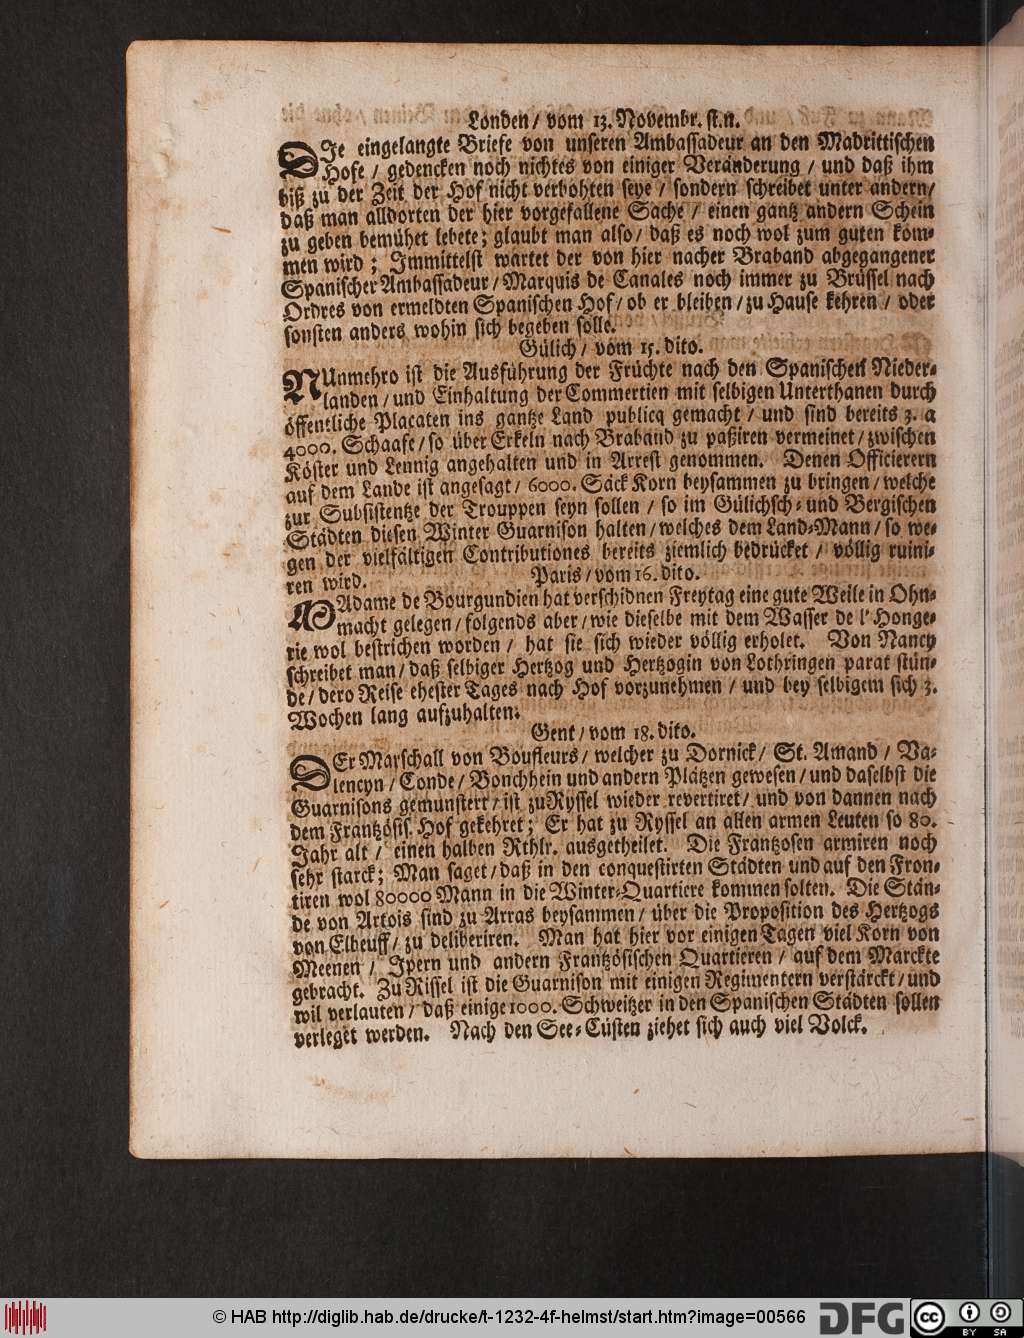 Londen / vom 13. Novembr. st.n.
DIe eingelangte Briefe von unseren Ambassadeur an den Madrittischen
Hofe / gedencken noch nichtes von einiger Veränderung / und daß ihm
biß zu der Zeit der Hof nicht verbohten seye / sondern schreibet unter andern/
daß man alldorten der hier vorgefallene Sache / einen gantz andern Schein
zu geben bemühet lebete; glaubt man also / daß es noch wol zum guten kom-
men wird ; Immittelst wartet der von hier nacher Braband abgegangener
Spanischer Ambassadeur / Marquis de Canales noch immer zu Brüssel nach
Ordres von ermeldten Spanischen Hof / ob er bleiben / zu Hause kehren / oder
sonsten anders wohin sich begeben solle.
Gülich / vom 15. dito.
NUnmehro ist die Ausführung der Früchte nach den Spanischen Nieder-
landen / und Einhaltung der Commertien mit selbigen Unterthanen durch
öffentliche Placaten ins gantze Land publicq gemacht / und sind bereits 3. a
4000. Schaafe / so über Erkeln nach Braband zu paßiren vermeinet / zwischen
Köster und Lennig angehalten und in Arrest genommen. Denen Officierern
auf dem Lande ist angesagt / 6000. Säck Korn beysammen zu bringen / welche
zur Subsistentze der Trouppen seyn sollen / so im Gülichsch- und Bergischen
Städten diesen Winter Guarnison halten / welches dem Land-Mann / so we-
gen der vielfältigen Contributiones bereits ziemlich bedrücket / völlig ruini-
ren wird.
Paris / vom 16. dito.
MAdame de Bourgundien hat verschidnen Freytag eine gute Weile in Ohn-
macht gelegen / folgends aber / wie dieselbe mit dem Wasser de l' Honge-
rie wol bestrichen worden / hat sie sich wieder völlig erholet. Von Nancy
schreibet man / daß selbiger Hertzog und Hertzogin von Lothringen parat stün-
de / dero Reise ehester Tages nach Hof vorzunehmen / und bey selbigem sich 3.
Wochen lang aufzuhalten.
Gent / vom 18. dito.
DEr Marschall von Boufleurs / welcher zu Dornick / St. Amand / Va-
lencyn / Conde / Bonchhein und andern Plätzen gewesen / und daselbst die
Guarnisons gemunstert / ist zu Ryssel wieder revertiret / und von dannen nach
dem Frantzösis. Hof gekehret; Er hat zu Ryssel an allen armen Leuten so 80.
Jahr alt / einen halben Rthlr. ausgetheilet. Die Frantzosen armiren noch
sehr starck; Man saget / daß in den conquestirten Städten und auf den Fron-
tiren wol 80000 Mann in die Winter-Quartiere kommen solten. Die Stän-
de von Artois sind zu Arras beysammen / über die Proposition des Hertzogs
von Elbeuff / zu deliberiren. Man hat hier vor einigen Tagen viel Korn von
Meenen / Ipern und andern Frantzösischen Quartieren / auf dem Marckte
gebracht. Zu Rissel ist die Guarnison mit einigen Regimentern verstärckt / und
wil verlauten / daß einige 1000. Schweitzer in den Spanischen Städten sollen
verleget werden. Nach den See-Cüsten ziehet sich auch viel Volck.
© HAB http://diglib.hab.de/drucke/t-1232-4f-helmst/start.htm?image=00566
DFG
cc BY SA